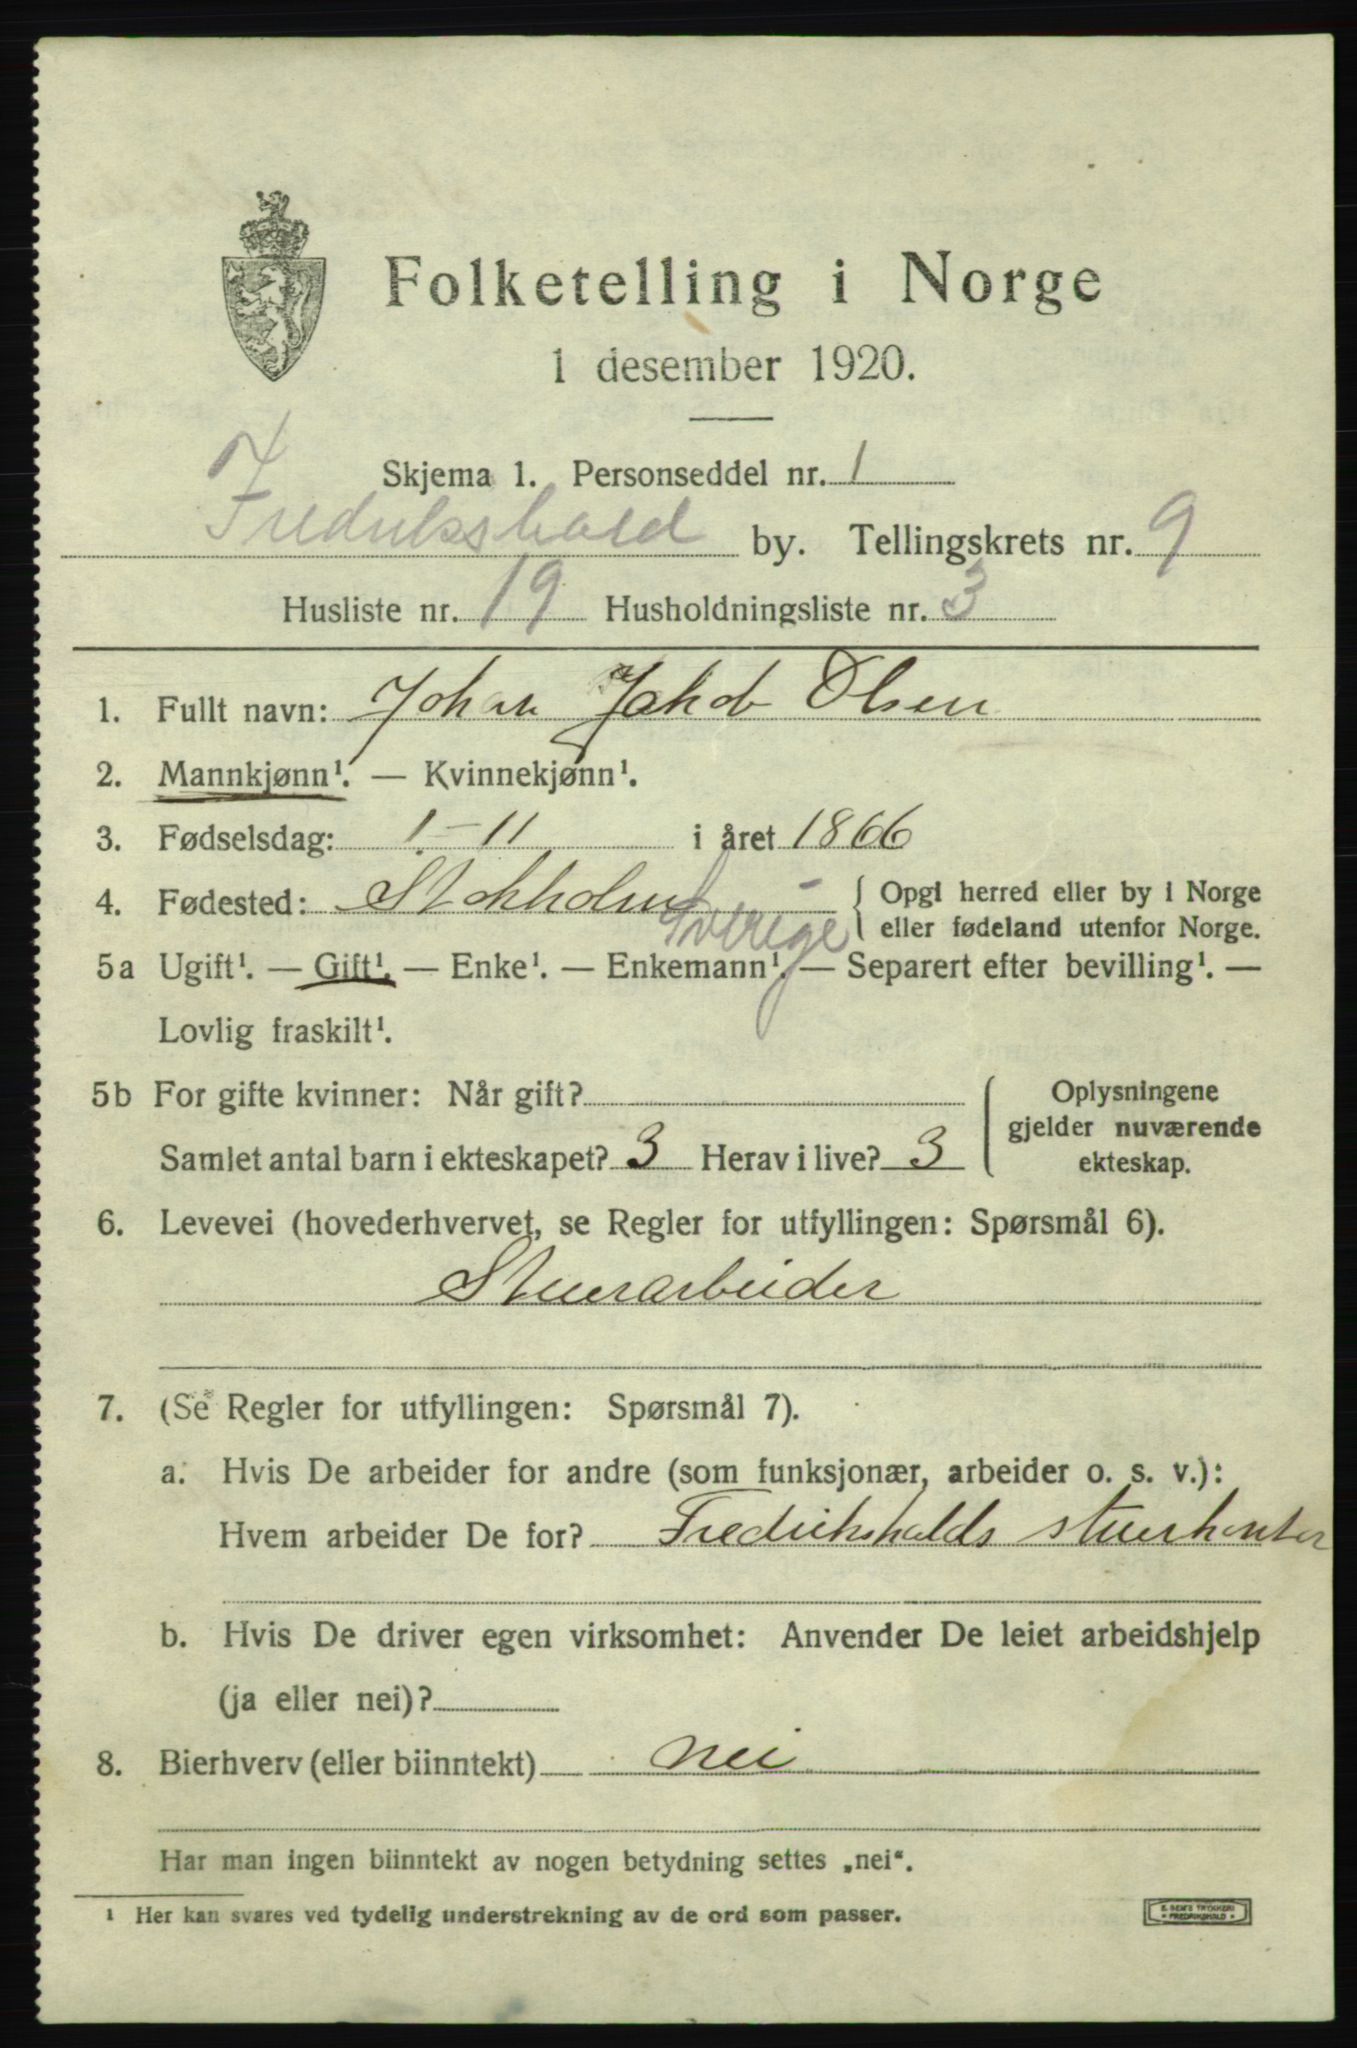 Folketelling i Norge
1 desember 1920.
Skjema 1. Personseddel nr. 1
Fredrikshald by. Tellingskrets nr. 9
Husliste nr. 19 Husholdningsliste nr. 3
1. Fullt navn: Johan Jakob Olsen
2. Mannkjønn¹. — Kvinnekjønn¹.
3. Fødselsdag: 1-11 i året 1866
4. Fødested: Stokholm - { Opgi herred eller by i Norge
Sverige eller fødeland utenfor Norge.
5a Ugift¹. — Gift¹. — Enke¹. — Enkemann¹. — Separert efter bevilling¹. —
Lovlig fraskilt¹.
5b For gifte kvinner: Når gift? ( Oplysningene
gjelder nuværende
Samlet antal barn i ekteskapet? 3 Herav i live? 3 ekteskap.
6. Levevei (hovederhvervet, se Regler for utfyllingen: Spørsmål 6).
Stuerarbeider
7. (Se Regler for utfyllingen: Spørsmål 7).
a. Hvis De arbeider for andre (som funksjonær, arbeider o. s. v.):
Hvem arbeider De for? Fredrikshalds stuerkontor
b. Hvis De driver egen virksomhet: Anvender De leiet arbeidshjelp
(ja eller nei)?
8. Bierhverv (eller biinntekt) nei
Har man ingen biinntekt av nogen betydning settes „nei“.
¹ Her kan svares ved tydelig understrekning av de ord som passer.
E. SEM'S TRYKKERI
• FREDRIKSHALD •